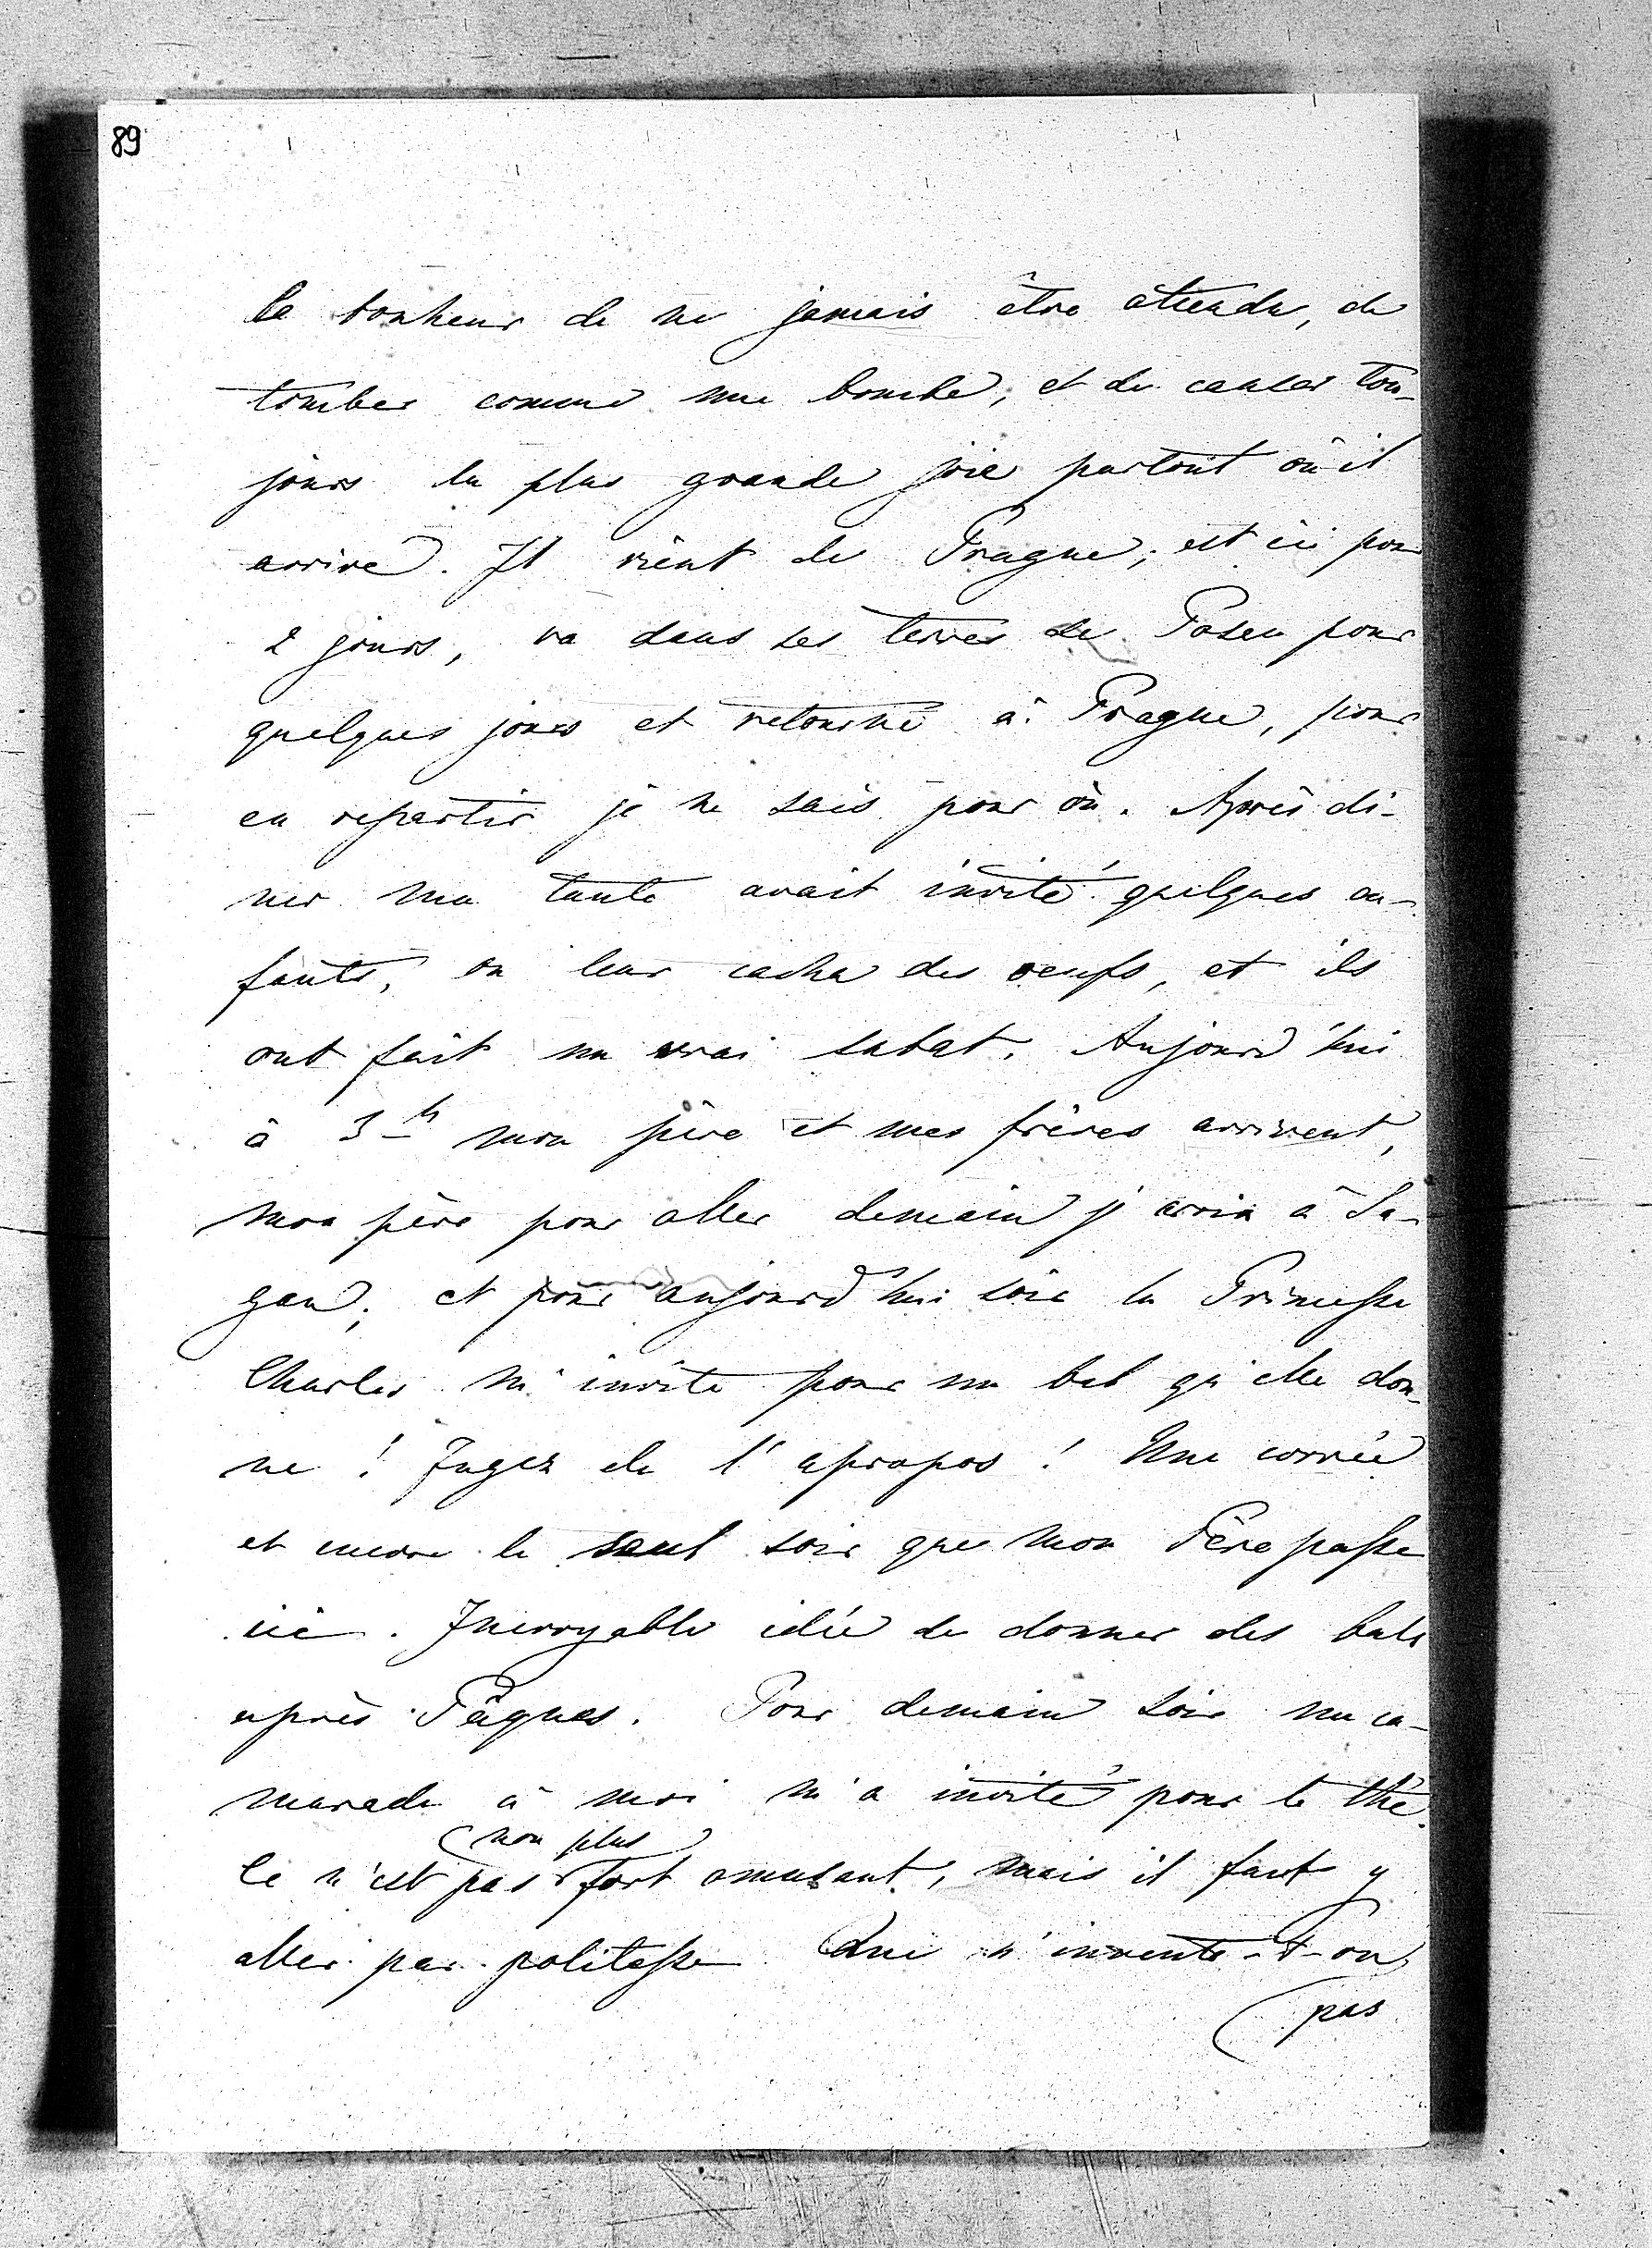 89
le bonheur de ne jamais être attendu, de
tomber comme une bombe, et de causer tou-
jours la plus grande joie partout où il
arrive. Il vient de Prague; est ici pour
2 jours, va dans ses terres de Posen pour
quelques jours et retourne à Prague, pour
en repartir je ne sais pour où. Après di-
ner ma tante avait invité quelques en-
fants, on leur cacha des oeufs, et ils
ont fait un vrai sabat. Aujourd'hui
à 3 h mon père et mes frères arrivent,
mon père pour aller demain je crois à Sa-
gan; et pour aujourd'hui soir la Princesse
Charles m'invite pour un bal qu'elle don-
ne! Jugez de l'apropos! Une corvée
et encore le seul soir que mon Père passe
ici. Incroyable idée de donner des bals
après Pâques. Pour demain soir un ca-
marade à moi m'a invité pour le thé.
non plus
Ce n'est pas fort amusant, mais il faut y
aller par politesse Que n'invente-t-on
pas